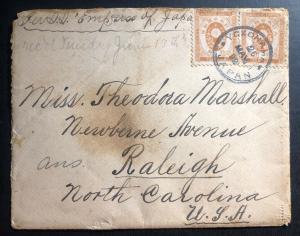 "Empress of Japan
rec'd Tuesday June 19th
YOKOHAMA
JAPAN
Miss. Theodora Marshall,
Newberne Avenue
ans. Raleigh
North Carolina
U.S.A.